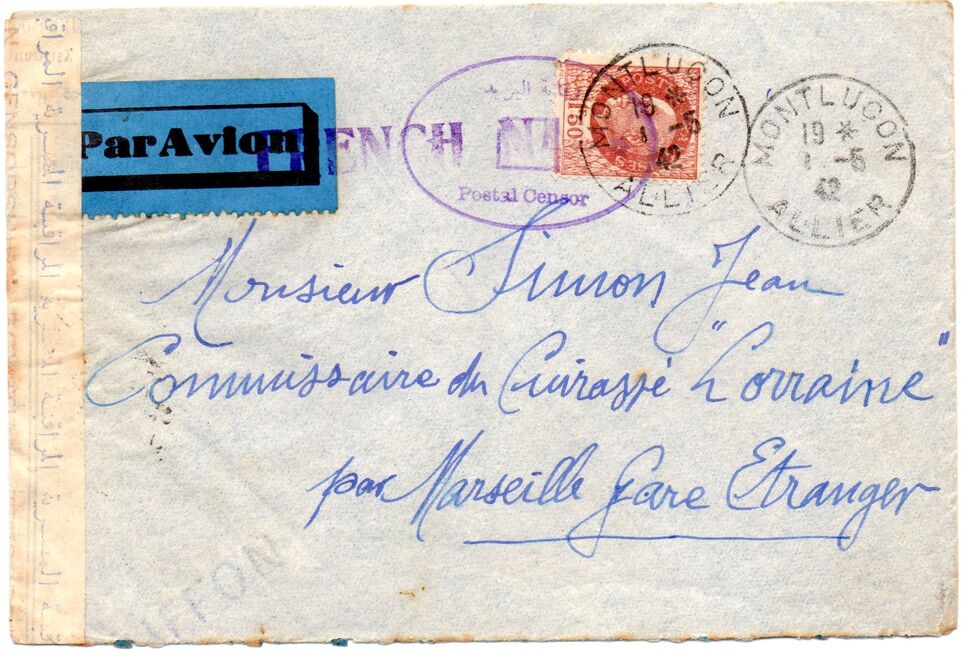 Par Avion
FRENCH NA
البريد
Postal Censor
POST
1F50
MONTLUCON
19 *
1 -5
42
ALLIER
MONTLUCON
19 *
1 -5
42
ALLIER
Monsieur Simon Jean
Commissaire du Cuirassé "Lorraine"
par Marseille Gare Etranger